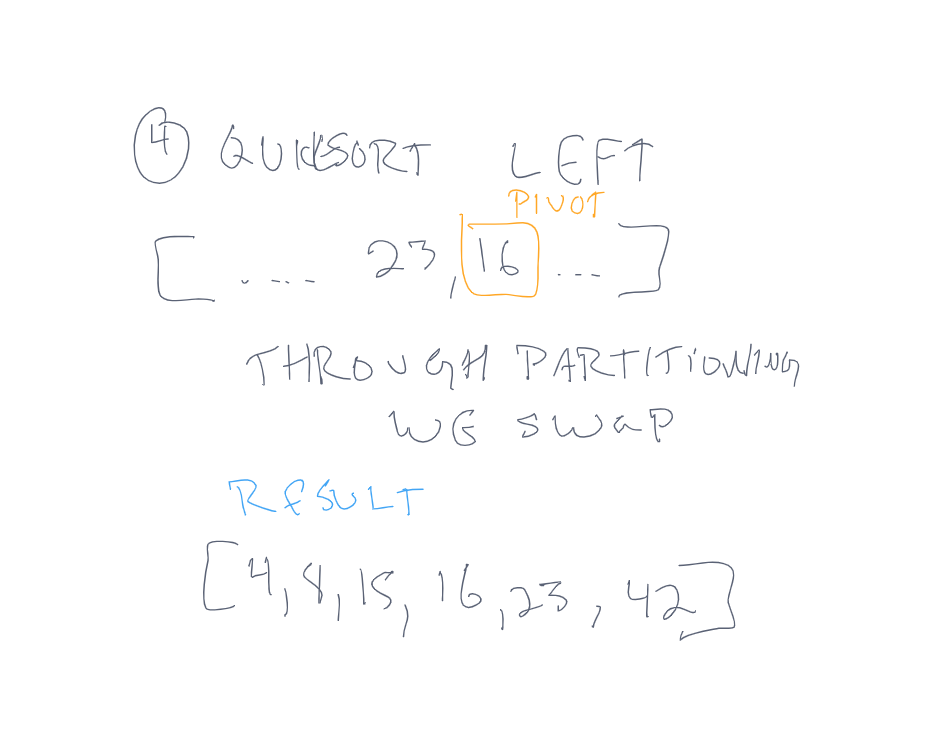 4 QUICKSORT LEFT
PIVOT
[ .... 23, 16 ... ]
THROUGH PARTITIONING
WE SWAP
RESULT
[4, 8, 15, 16, 23, 42]